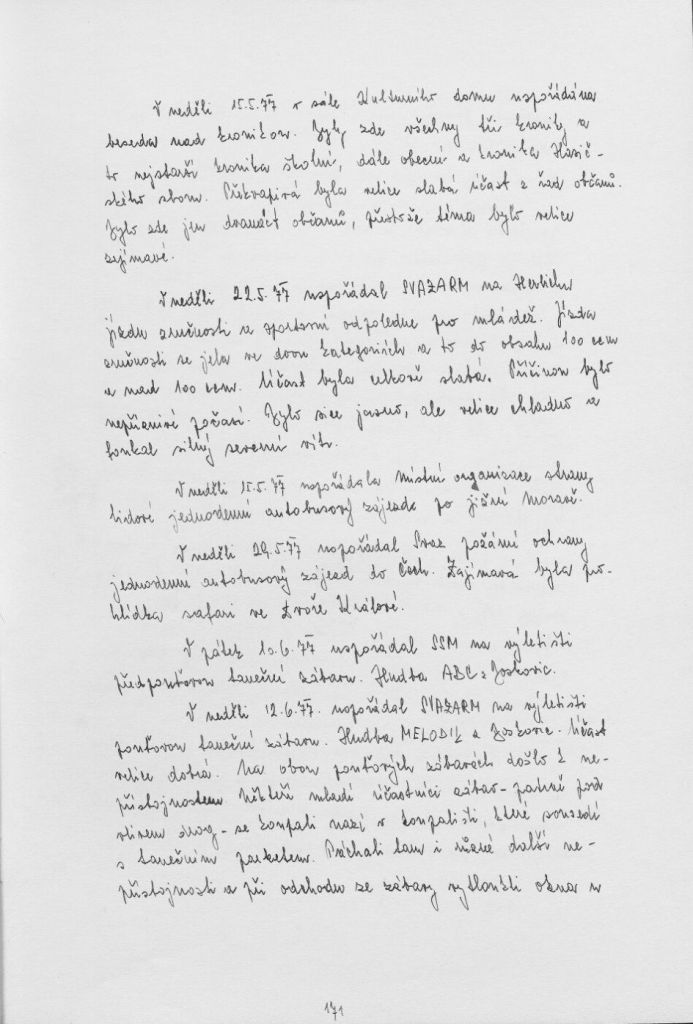 V neděli 15.5.77 v sále Kulturního domu uspořádána
beseda nad kronikou. Byly zde všechny tři kroniky a
to nejstarší kronika školní, dále obecní a kronika Hasič-
ského sboru. Překvapivá byla velice slabá účast z řad občanů.
Bylo zde jen dvanáct občanů, přestože téma bylo velice
zajímavé.
V neděli 22.5.77 uspořádal SVAZARM na
jízdu zručnosti a sportovní odpoledne pro mládež. Jízda
zručnosti se jela ve dvou kategoriích a to do obsahu 100 ccm
a nad 100 ccm. Účast byla celkově slabá. Příčinou bylo
nepříznivé počasí. Bylo sice jasno, ale velice chladno a
foukal silný severní vítr.
V neděli 15.5.77 uspořádala místní organisace strany
lidové jednodenní autobusový zájezd po jižní Moravě.
V neděli 29.5.77 uspořádal Svaz požární ochrany
jednodenní autobusový zájezd do Čech. Zajímavá byla pro-
hlídka safari ve Dvoře Králové.
V pátek 10.6.77 uspořádal SSM na výletišti
předpouťovou taneční zábavu. Hudba ABC z Boskovic.
V neděli 12.6.77. uspořádal SVAZARM na výletišti
pouťovou taneční zábavu. Hudba MELODIK z Boskovic. Účast
velice dobrá. Na obou pouťových zábavách došlo k ne-
přístojnostem. Někteří mladí účastníci zábav - patrně pod
vlivem drog - se koupali nazí v koupališti, které sousedí
s tanečním parketem. Páchali tam i různé další ne-
přístojnosti a při odchodu ze zábavy vytloukli okna u
171